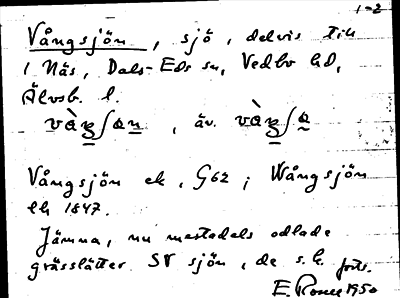 1-2
Vångsjön, sjö, delvis till
1 Näs, Dals-Eds sn, Vedbo hd,
Älvsb. l.
, äv.
Vångsjön ek. G62; Wångsjön
1847.
Jämna, nu mestadels odlade
grässlätter SV sjön, de s.k. forts.
1950